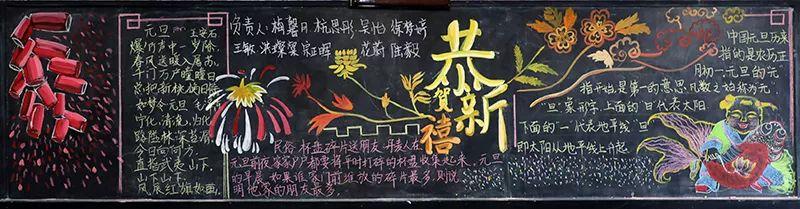 元旦 王安石
爆竹声中一岁除
春风送暖入屠苏
千门万户曈曈日
总把新桃换旧符
如梦令元旦
宁化、清流、归化
路隘林深苔滑
今日向何方
直指武夷山下
山下山下
风展红旗如画
负责人:梅馨月
王敏
恭贺新禧
民俗 杯盘碎片送朋友 丹麦人在
元旦前夜家家户户都要将平时打碎的杯盘收集起来、元旦
的早晨,如果谁家门前堆放的碎片最多,则说
明他家的朋友最多
中国元旦历来
指的是农历正
月初一.元旦的元
指开始,是第一的意思,凡数之始称为元
“旦”象形字,上面的日代表太阳
下面的一代表地平线“旦”
即太阳从地平线上升起